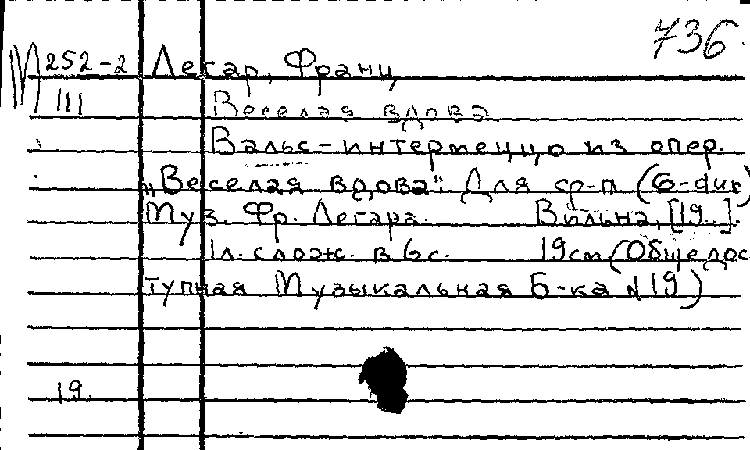 736.
М 252-2 Легар, Франц
III Веселая вдова
Вальс-интермеццо из опер.
„Веселая вдова". Для ф-п (G-dur)
Муз. Фр. Легара. Вильна, [19..].
1л. слож. в 6 с. 19см (Общедос
тупная Музыкальная Б-ка №19)
19.